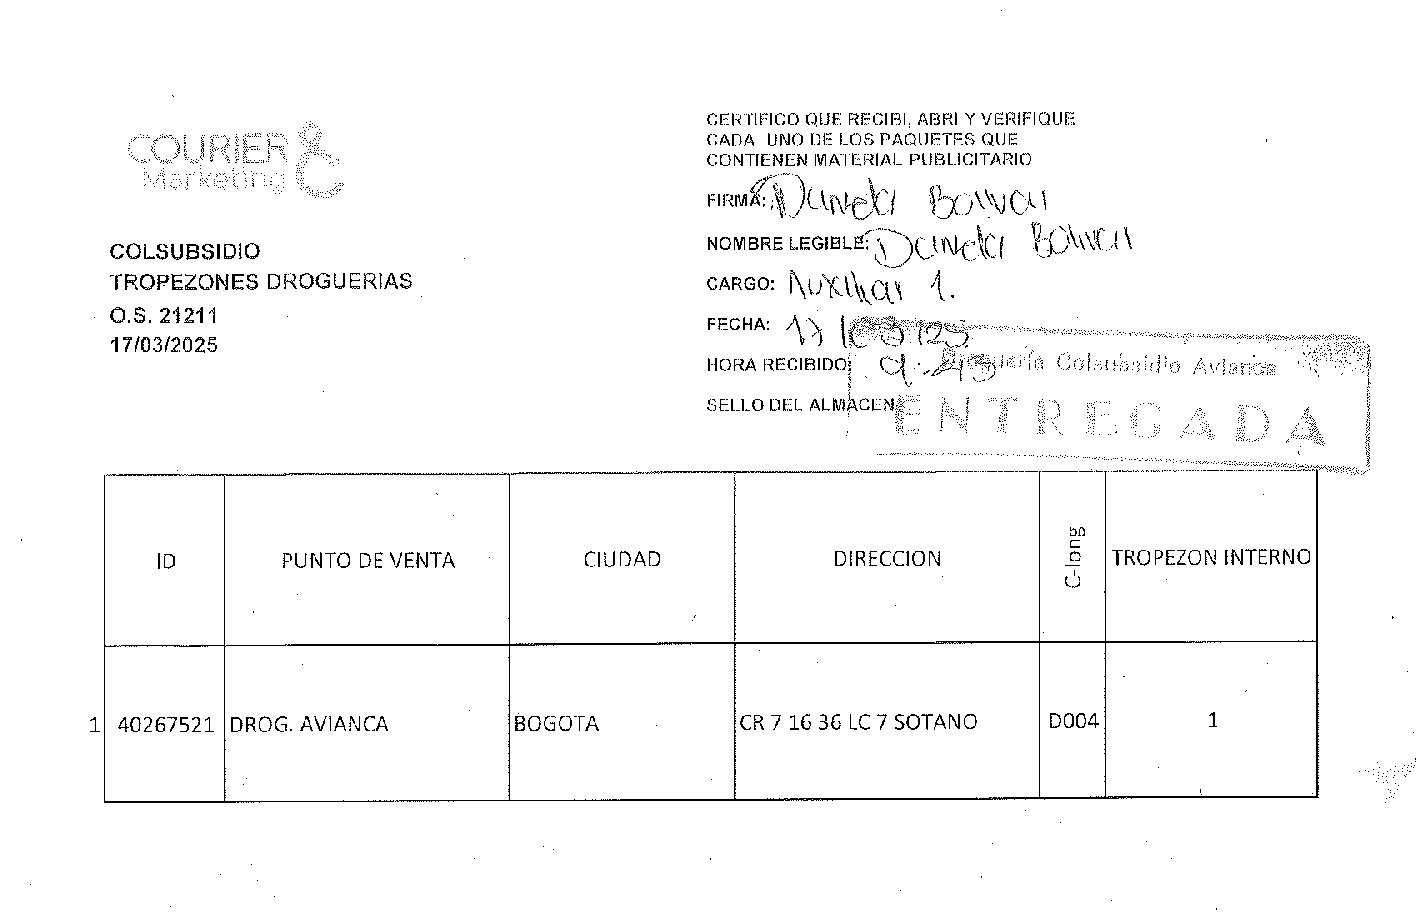 COURIER
Marketing
COLSUBSIDIO
TROPEZONES DROGUERIAS
O.S. 21211
17/03/2025
CERTIFICO QUE RECIBI, ABRI Y VERIFIQUE
CADA UNO DE LOS PAQUETES QUE
CONTIENEN MATERIAL PUBLICITARIO
FIRMA:
NOMBRE LEGIBLE:
CARGO: Auxiliar 1.
FECHA: 17/03/25
HORA RECIBIDO:
SELLO DEL ALMACEN
Droguería Colsubsidio Avianca
ENTREGADA
ID PUNTO DE VENTA CIUDAD DIRECCION C-long TROPEZON INTERNO
1 40267521 DROG. AVIANCA BOGOTA CR 7 16 36 LC 7 SOTANO D004 1